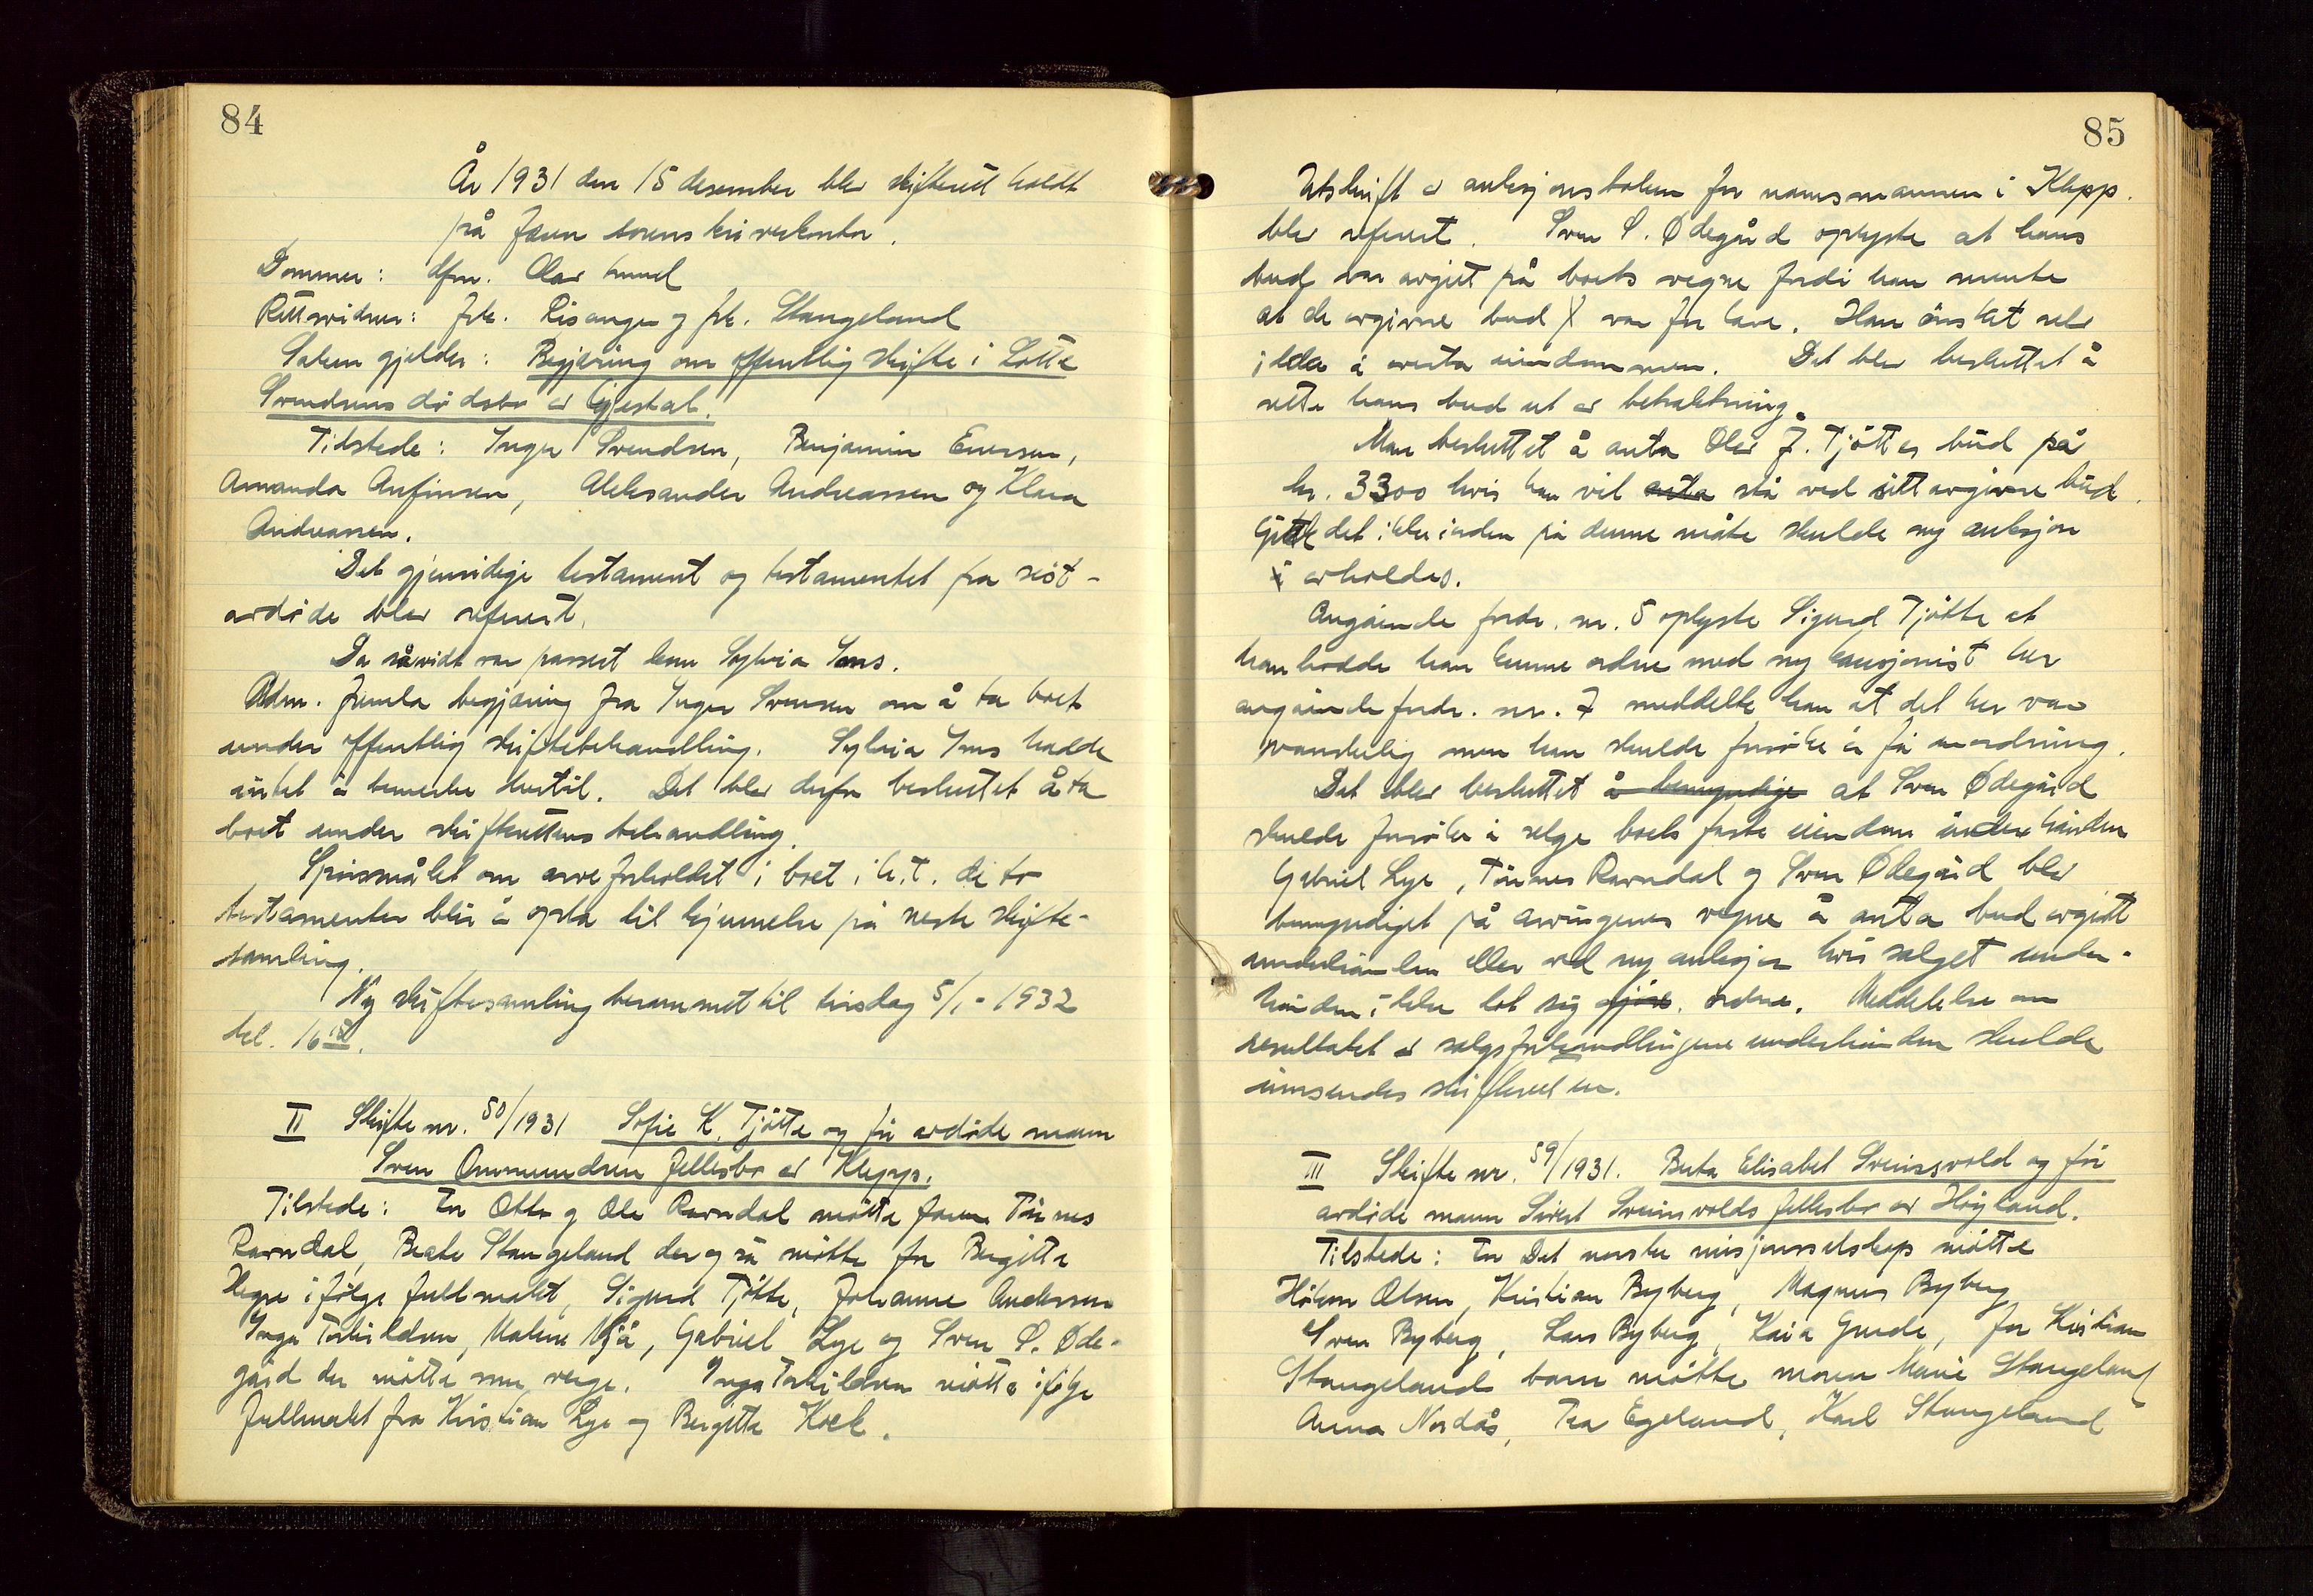 84
År 1931 den 15 desember blev skifterett holdt
på Jæren sorenskriverkontor.
Dommer: dfm. Olav
Rettsvidner: frk. Risanger og frk. Stangeland
Saken gjelder: Begjæring om offentlig skifte i Lotte
Svendsens dødsbo av Gjestal.
Tilstede: Inger Svendsen, Benjamin Evensen,
Amanda Anfinsen, Aleksander Andreassen og Klara
Andreassen.
Det gjensidige testament og testamentet fra sist-
avdøde blev referert.
Da såvidt var passert kom Sylvia Ims.
Adm. fremla begjæring fra Inger Svensen om å ta boet
under offentlig skiftebehandling. Sylvia Ims hadde
intet å bemerke hertil. Det blev derfor besluttet å ta
boet under skifterettens behandling.
Spørsmålet om arveforholdet i boet i h.t. de to
testamenter blir å opta til kjennelse på neste skifte-
samling.
Ny skiftesamling berammet til tirsdag 5/1-1932
kl. 16
II Skifte nr. 50/1931 Sofie K. Tjøtta og før avdøde mann
Sven Ommundsen fellesbo av Klepp.
Tilstede: For Otto og Ole Ravndal møtte faren Tønnes
Ravndal, Beate Stangeland der også møtte for Bergitte
Hegre ifølge fullmakt, Sigurd Tjøtta, Johanne Andersen
Inga Torkildsen, Malene Njå, Gabriel Lye og Sven S. Øde-
gård der møtte som verge. Inga Torkildsen møtte ifølge
fullmakt fra Kristian Lye og Bergitte Koch.
85
Utskrift av auksjonsboken for namsmannen i Klepp.
blev referert. Sven S. Ødegård oplyste at hans
bud var avgitt på boets vegne fordi han mente
at de avgivne bud var for lave. Han ønsket selv
ikke å overta eiendommen. Det blev besluttet å
sette hans bud ut av betraktning.
Man besluttet å anta Olav J. Tjøttas bud på
kr. 3300 hvis han vil anta stå ved sitt avgivne bud.
Gikk det ikke i orden på denne måte skulde ny auksjon
avholdes.
Angående fordr. nr. 5 oplyste Sigurd Tjøtta at
han trodde han kunne ordne med ny kausjonist her
angående fordr. nr. 7 meddelte han at det her var
vanskelig men han skulde forsøke å få en ordning.
Det blev besluttet å bemyndige at Sven Ødegård
skulde forsøke å selge boets faste eiendom under hånden
Gabriel Lye, Tønnes Ravndal og Sven Ødegård blev
bemyndiget på arvingenes vegne å anta bud avgitt
underhånden eller ved ny auksjon hvis salget under-
hånden ikke lot sig gjøre. ordne. Meddelelse om
resultatet av salgsforhandlingene underhånden skulde
innsendes skifteretten.
III Skifte nr. 59/1931. Berta Elisabet Sveinsvold og før
avdøde mann Sivert Sveinsvolds fellesbo av Høyland.
Tilstede: For Det norske misjonsselskap møtte
Håkon Olsen, Kristian Byberg, Magnus Byberg
Sven Byberg, Lars Byberg, Kaia Grude, for Kristian
Stangeland barn møtte moren Marie Stangeland
Anna Nordås, Tea Egeland, Karl Stangeland